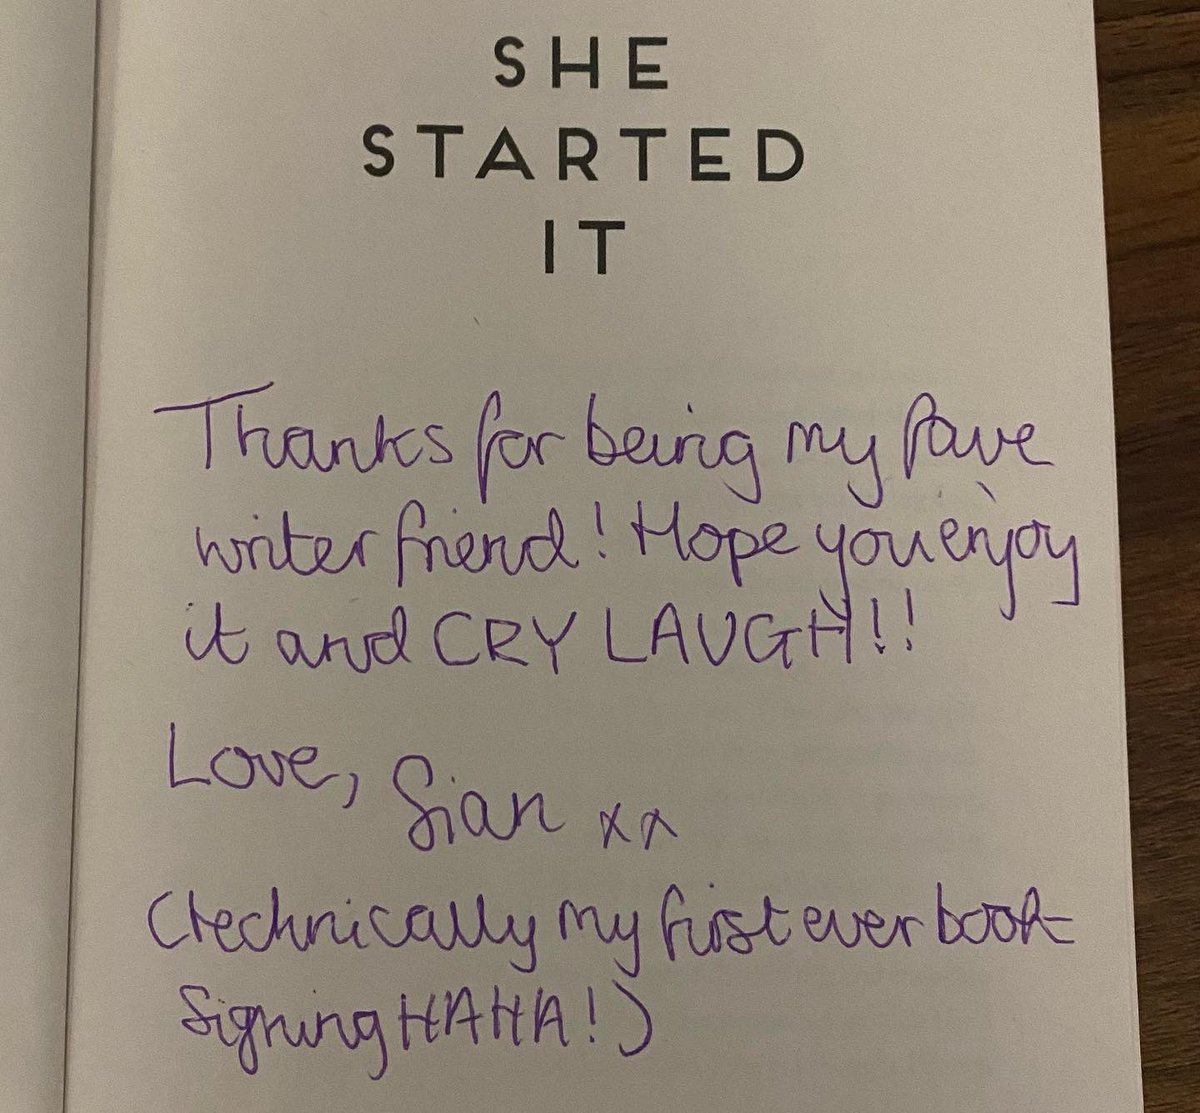 SHE
STARTED
IT
Thanks for being my fave
writer friend! Hope you enjoy
it and CRY LAUGH!!
Love, Sian xx
(technically my first ever book
signing HAHA!)